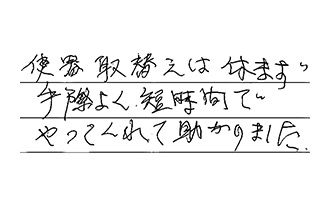 便器取替えは休まず
手際よく.短時間で
やってくれて助かりました.